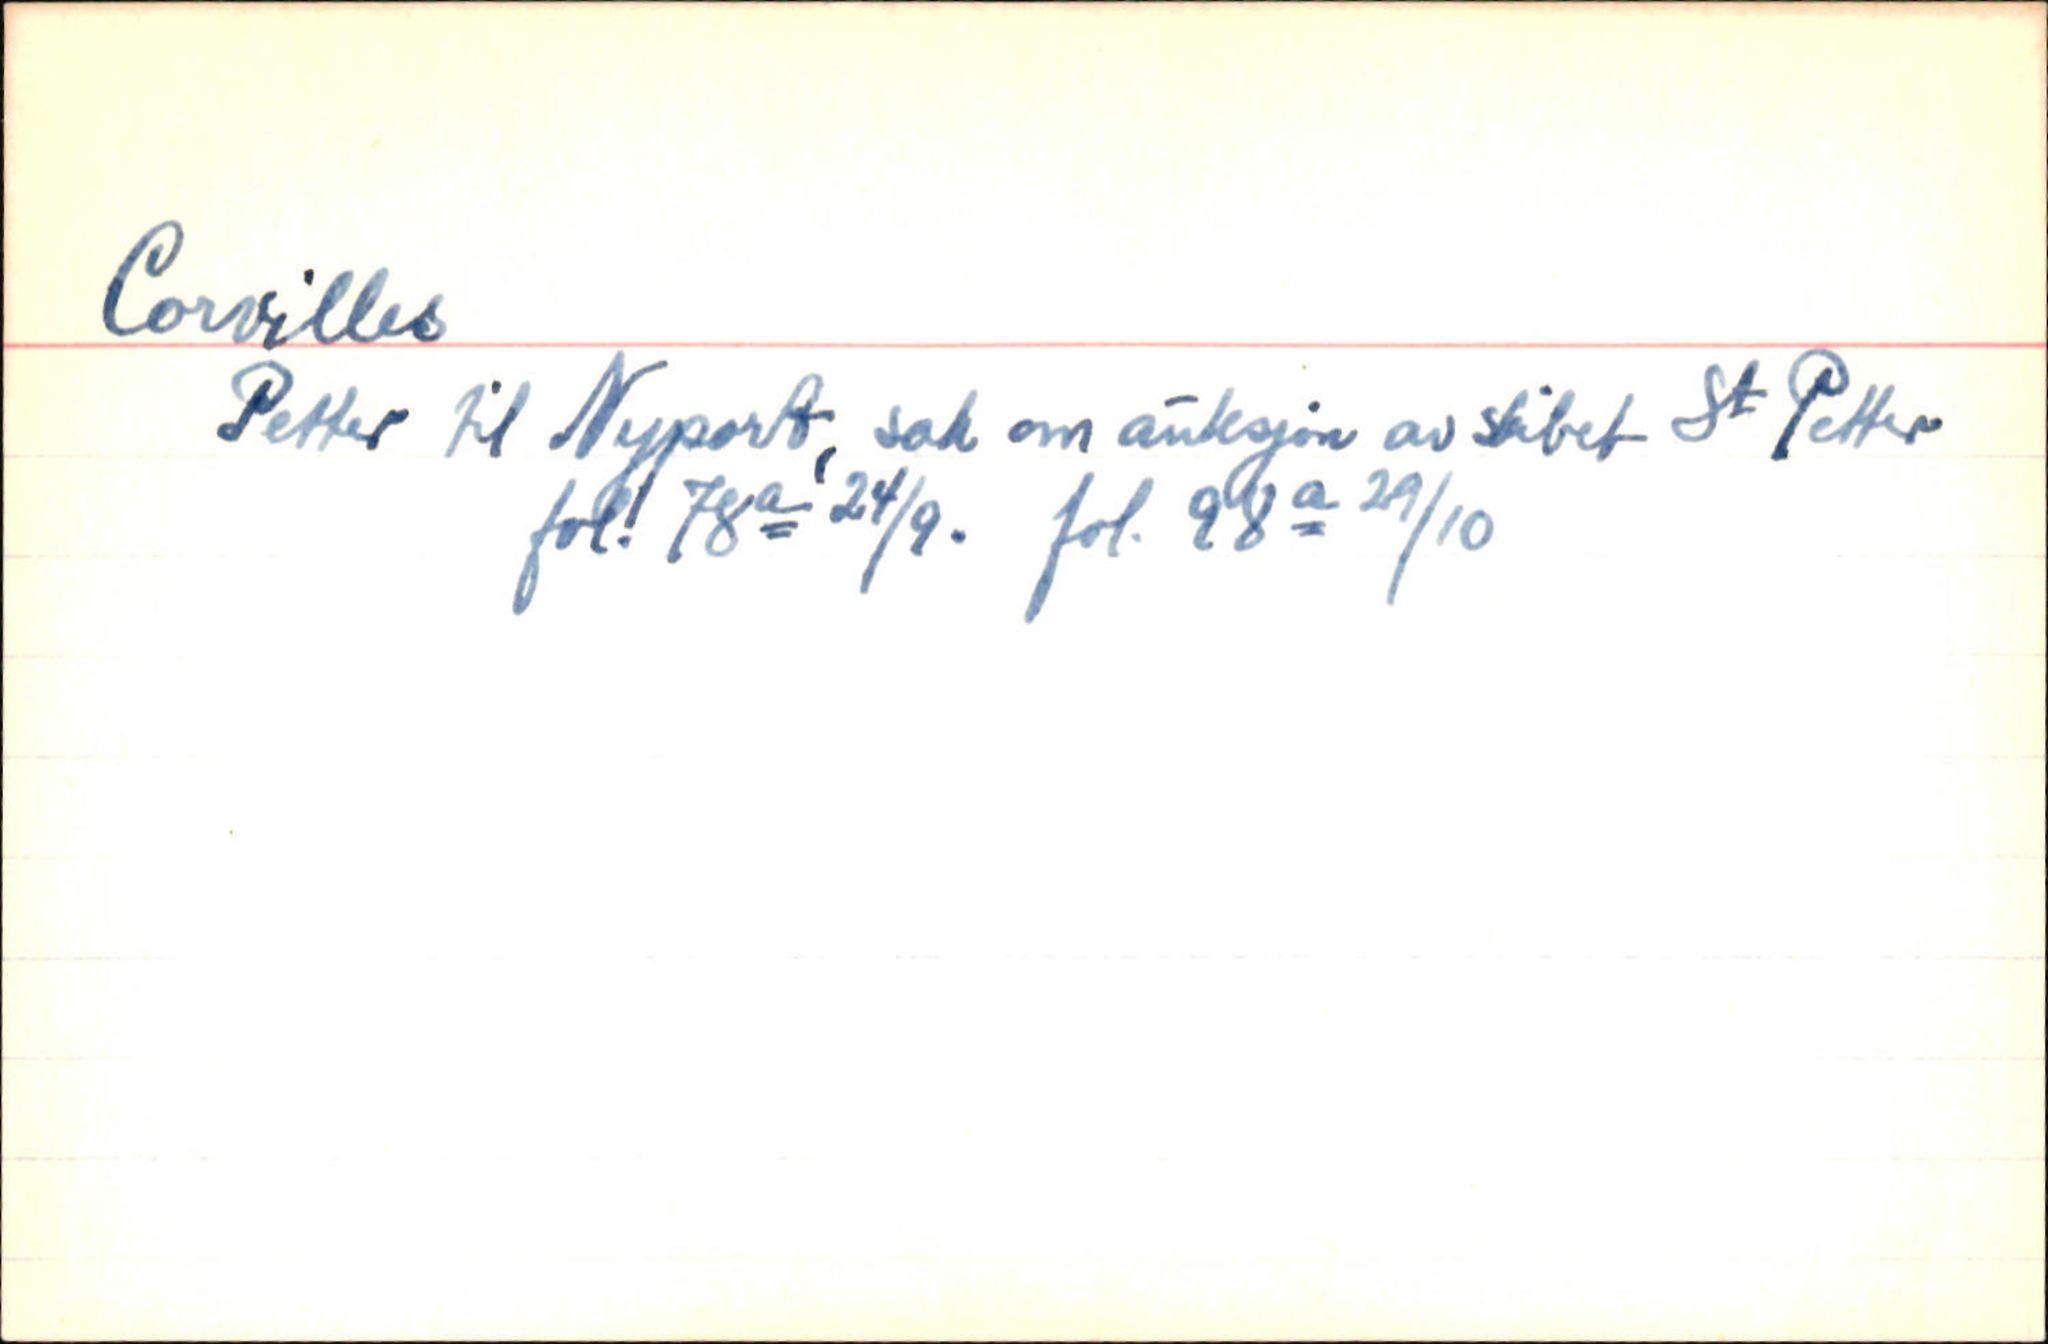 Corvilles
Petter til Nyport, sak om auksjon av skibet St Petter
fol. 78a 24/9. fol. 98a 29/10